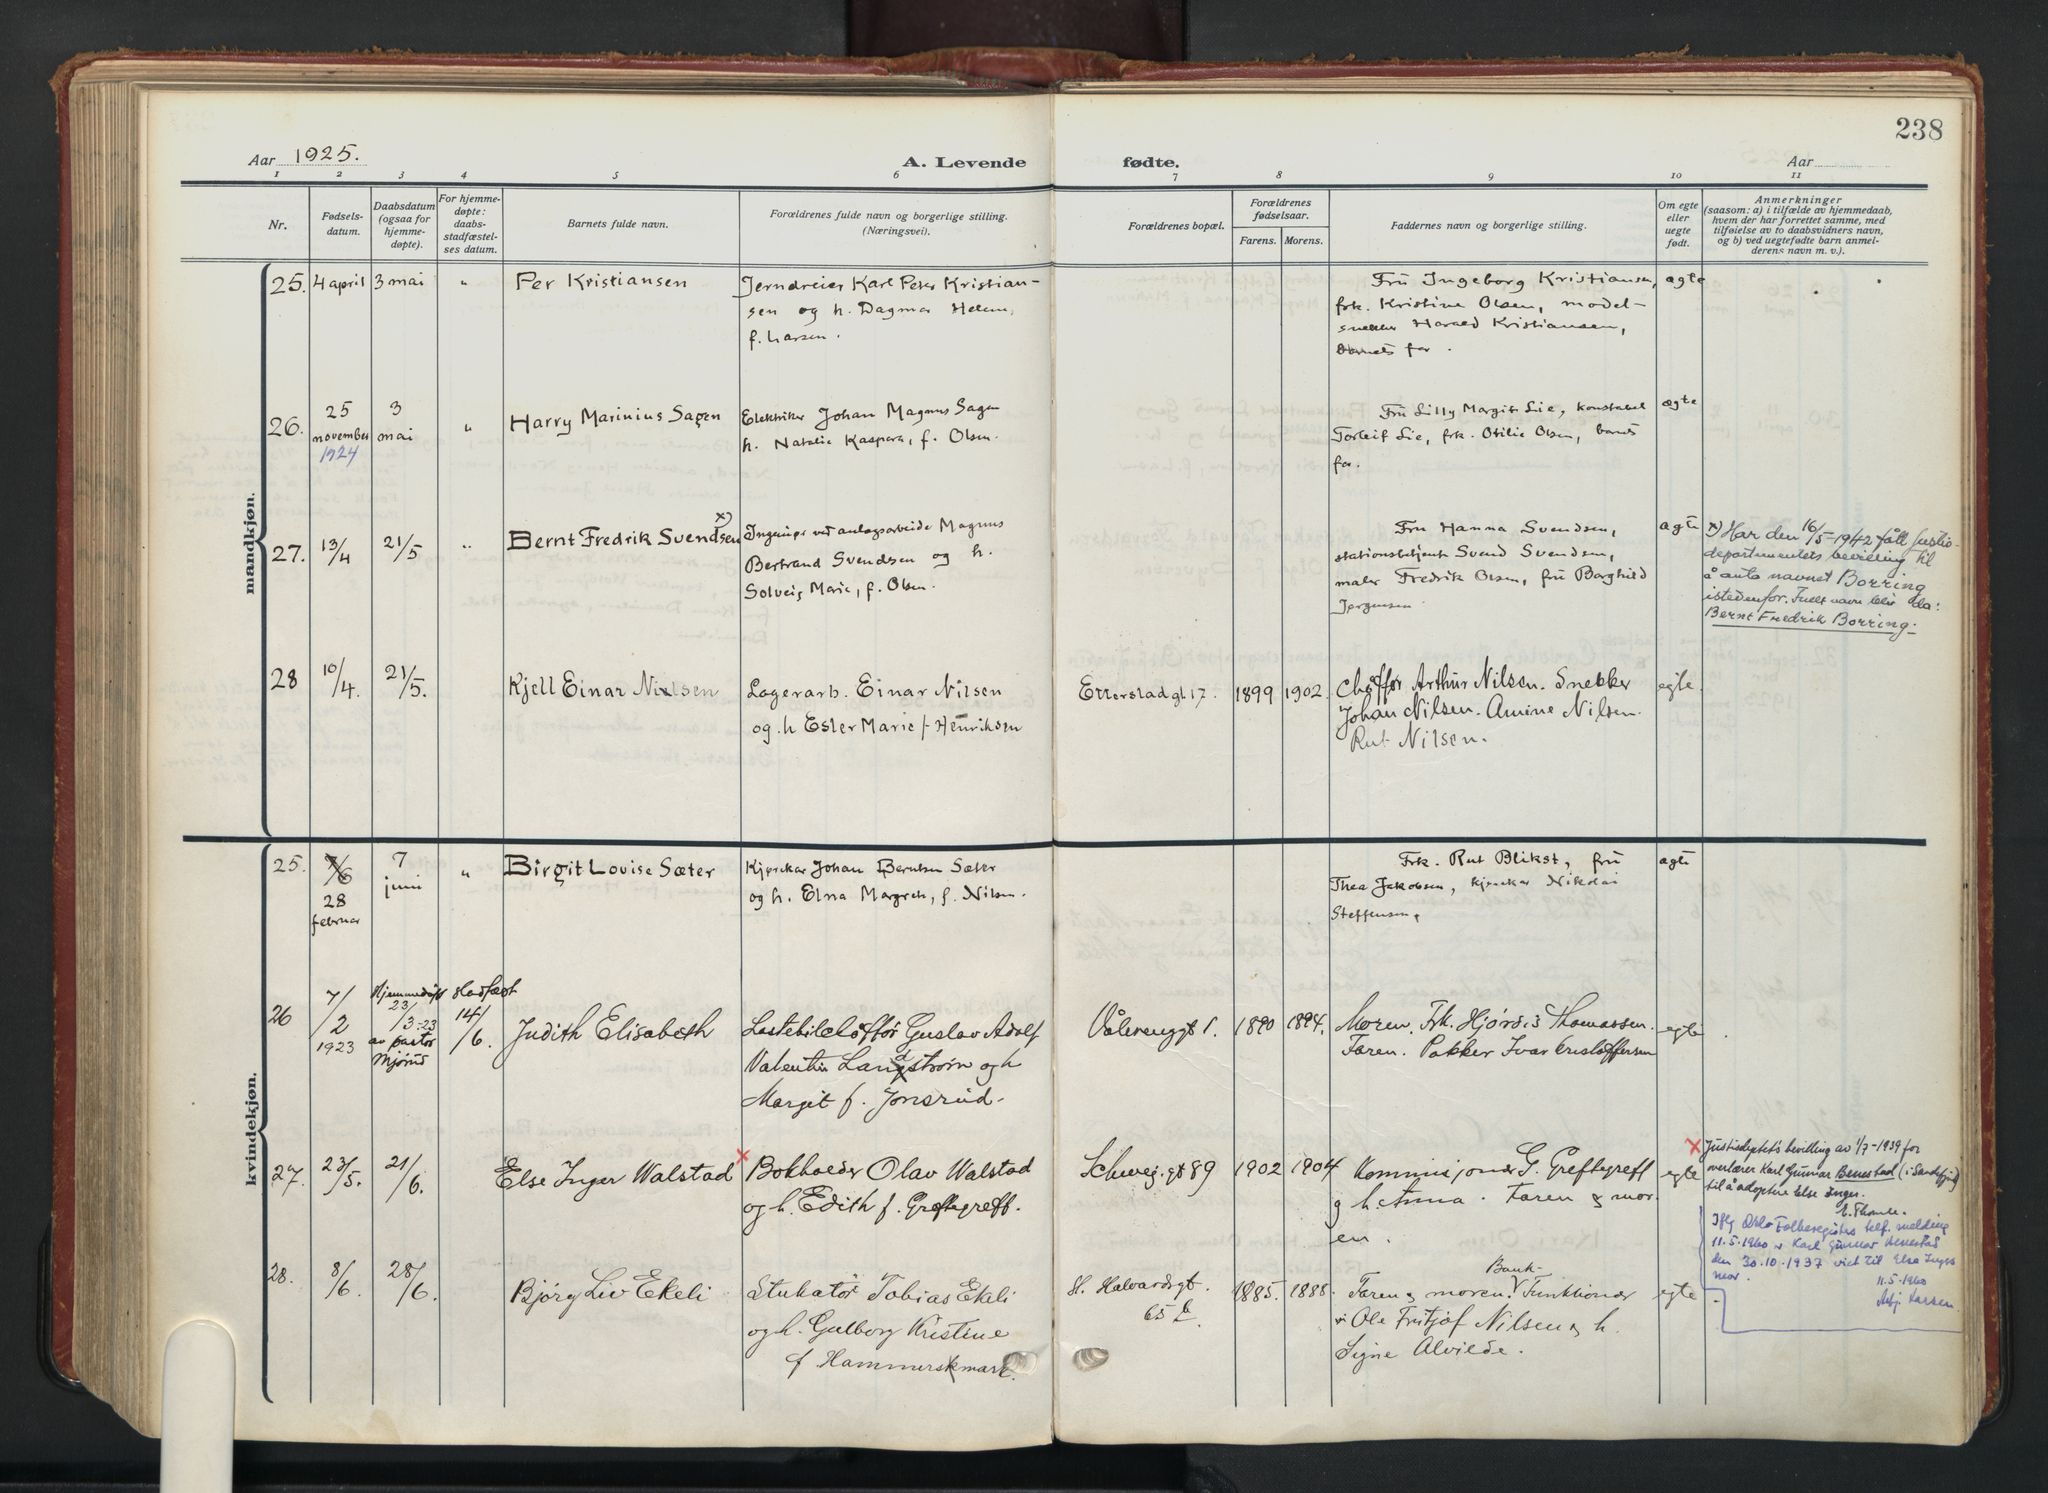 238
Aar 1925.
A. Levende
fødte.
Aar
1 2 3 4 5 6 7 8 9 10 11
Nr.
Fødsels-
datum.
Daabsdatum
(ogsaa for
hjemme-
døpte).
For hjemme-
døpte:
daabs-
stadfæstel-
ses datum.
Barnets fulde navn.
Forældrenes fulde navn og borgerlige stilling.
(Næringsvei).
Forældrenes bopæl.
Forældrenes
fødselsaar.
Farens. Morens.
Faddernes navn og borgerlige stilling.
Om egte
eller
uegte
født.
Anmerkninger
(saasom: a) i tilfælde av hjemmedaab,
hvem der har forrettet samme, med
tilføielse av to daabsvidners navn,
og b) ved uegtefødte barn anmel-
derens navn m. v.).
mandkjøn.
25. 4 april 3 mai " Per Kristiansen
Jerndreier Karl Peter Kristian-
sen og h. Dagmar Helene,
f. Larsen.
Fru Ingeborg Kristiansen,
frk. Kristine Olsen, model-
snekker Harald Kristiansen,
barnets far.
ægte
26. 25 november 1924
3 mai
" Harry Marinius Sagen
Elektriker Johan Magnus Sagen
h. Natalie Kaspara, f. Olsen.
Fru Lilly Margit Lie, konstabel
Torleif Lie, frk. Otilie Olsen, barnets
far.
ægte
27. 13/4 21/5 " Bernt Fredrik Svendsen x)
Ingeniør ved anlægsarbeide Magnus
Bertrand Svendsen og h.
Solveig Marie, f. Olsen.
Fru Hanna Svendsen,
stationsbetjent Svend Svendsen,
maler Fredrik Olsen, fru Borghild
Jørgensen
ægte
x) Har den 16/5-1942 fått Justis-
departementets bevilling til
å anta navnet Borring
istedenfor. Fullt navn blir da:
Bernt Fredrik Borring.
28 10/4. 21/5. Kjell Einar Nielsen
Lagerarb. Einar Nilsen
og h Ester Marie f Henriksen
Etterstadgt 17. 1899 1902.
Chøffør Arthur Nilsen. Snekker
Johan Nilsen. Amine Nilsen.
Rut Nilsen.
egte
kvindekjøn.
25. 7/6
28
februar
7
juni
" Birgit Lovise Sæter
Kjørekar Johan Berntsen Sæter
og h. Elna Margrete, f. Nilsen.
Frk. Rut Blikst, fru
Thea Jakobsen, kjørekar Nikolai
Steffensen,
ægte
26 7/2 1923
Hjemmedøpt
23/3-23
av pastor
Mjørud
Stadfæst
14/6.
Judith Elisabeth
Lastebilchøffør Gustav Adolf
Valentin Landstrøm og h
Margit f. Jonsrud.
Vålerenggt 1. 1890 1894.
Moren. Frk. Hjørdis Thomassen.
Faren. Pakker Ivar Kristoffersen
egte
27. 23/5. 21/6. Else Inger Walstad
x Bokholder Olav Walstad
og h. Edith f. Greftegreff.
Schweigt. gt 89 1902 1904
Kommisjonær G. Greftegreff
og h. Anna. Faren & mor
en.
egte
x Justisdeptets bevilling av 1/7-1939 for
overlærer Karl Gunnar Benestad (i Sandefjord)
til å adoptere Else Inger.
E. Thomle.
Iflg Oslo Folkeregisters telf. melding
11.5.1960 er Karl Gunnar Benestad
den 30.10.1937 viet til Else Ingers
mor.
11.5.1960
Larsen.
28. 8/6. 28/6. Bjørg Liv Ekeli
Stukatør Tobias Ekeli
og h. Gulborg Kristine
f Hammersmark.
St. Halvardsgt.
65
1885. 1888.
Faren & moren. Bank-Funktionær
Ole Fritjof Nilsen & h.
Signe Alvilde.
egte